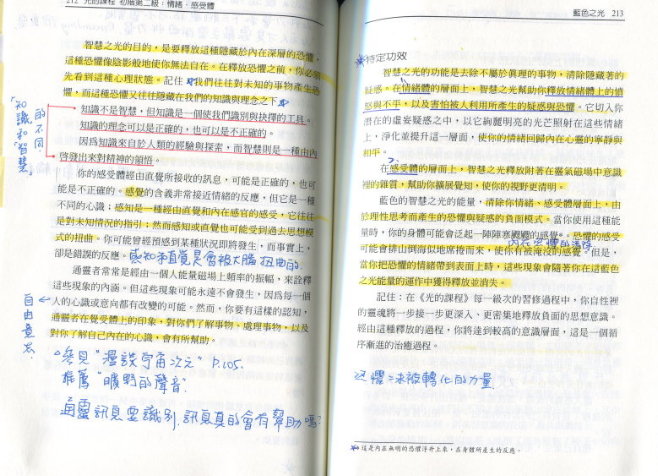 212 光的課程 初階第二級：情緒．感受體
智慧之光的目的，是要釋放這種隱藏於內在深層的恐懼，
這種恐懼像陰影般地使你無法自在。在釋放恐懼之前，你必須
先看到這種心理狀態。記住，我們往往對未知的事物產生恐
懼，而這種恐懼又往往隱藏在我們的知識與理念之下。
知識不是智慧，但知識是一個使我們識別與抉擇的工具。
知識的理念可以是正確的，也可以是不正確的。
因為知識來自於人類的經驗與探索，而智慧則是一種由內
啓發出來對精神的領悟。
你的感受體經由直覺所接收的訊息，可能是正確的，也可
能是不正確的。感覺的含義非常接近情緒的反應，但它是一種
不同的心識；感知是一種經由直覺和內在感官的感受，它往往
是對未知情況的指引；然而感知或直覺也可能受到過去思想模
式的扭曲。你可能曾經預感到某種狀況即將發生，而事實上，
卻是錯誤的反應。感知本質是會被大腦扭曲的
通靈者常常是經由一個人能量磁場上頻率的振幅，來詮釋
這些現象的內涵。但這些現象可能永遠不會發生，因為每一個
人的心識或意向都有改變的可能。然而，你要有這樣的認知，
通靈者在覺受體上的印象，對你們了解事物、處理事物，以及
對你了解自己內在的心識，會有所幫助。
知識和智慧的不同
自由意志
參見"漫談宇宙次元" P.105.
推薦"曠野的聲音"
通靈訊息要識別，訊息真的會有幫助嗎？
藍色之光 213
特定功效
智慧之光的功能是去除不屬於真理的事物，清除隱藏著的
疑惑。在情緒體的層面上，智慧之光幫助你釋放情緒體上的憤
怒與不平，以及害怕被人利用所產生的疑惑與恐懼。它切入你
潛在的虛妄疑惑之中，以它絢麗明亮的光芒照射在這些情緒
上，淨化並提升這一層面，使你的情緒回歸內在心靈的寧靜與
和平。
在感受體的層面上，智慧之光釋放附著在靈氣磁場中意識
裡的雜質，幫助你擴展覺知，使你的視野更清明。
藍色的智慧之光的能量，清除你情緒、感受體層面上，由
於理性思考而產生的恐懼與疑惑的負面模式。當你使用這種能
量時，你的身體可能會泛起一陣陣寒顫的感覺。恐懼的模式
可能會排山倒海似地席捲而來，使你有被淹沒的感覺。但是，
當你把恐懼的情緒帶到表面上時，這些現象會隨著你在這藍色
之光能量的運作中獲得釋放並消失。
記住：在《光的課程》每一級次的習修過程中，你自性裡
的靈魂將一步接一步更深入、更密集地釋放負面的思想意識。
經由這種釋放的過程，你將達到較高的意識層面，這是一個循
序漸進的治癒過程。
恐懼
被轉化的力量
這是內在無明的恐懼浮升上來，在身體所產生的反應。